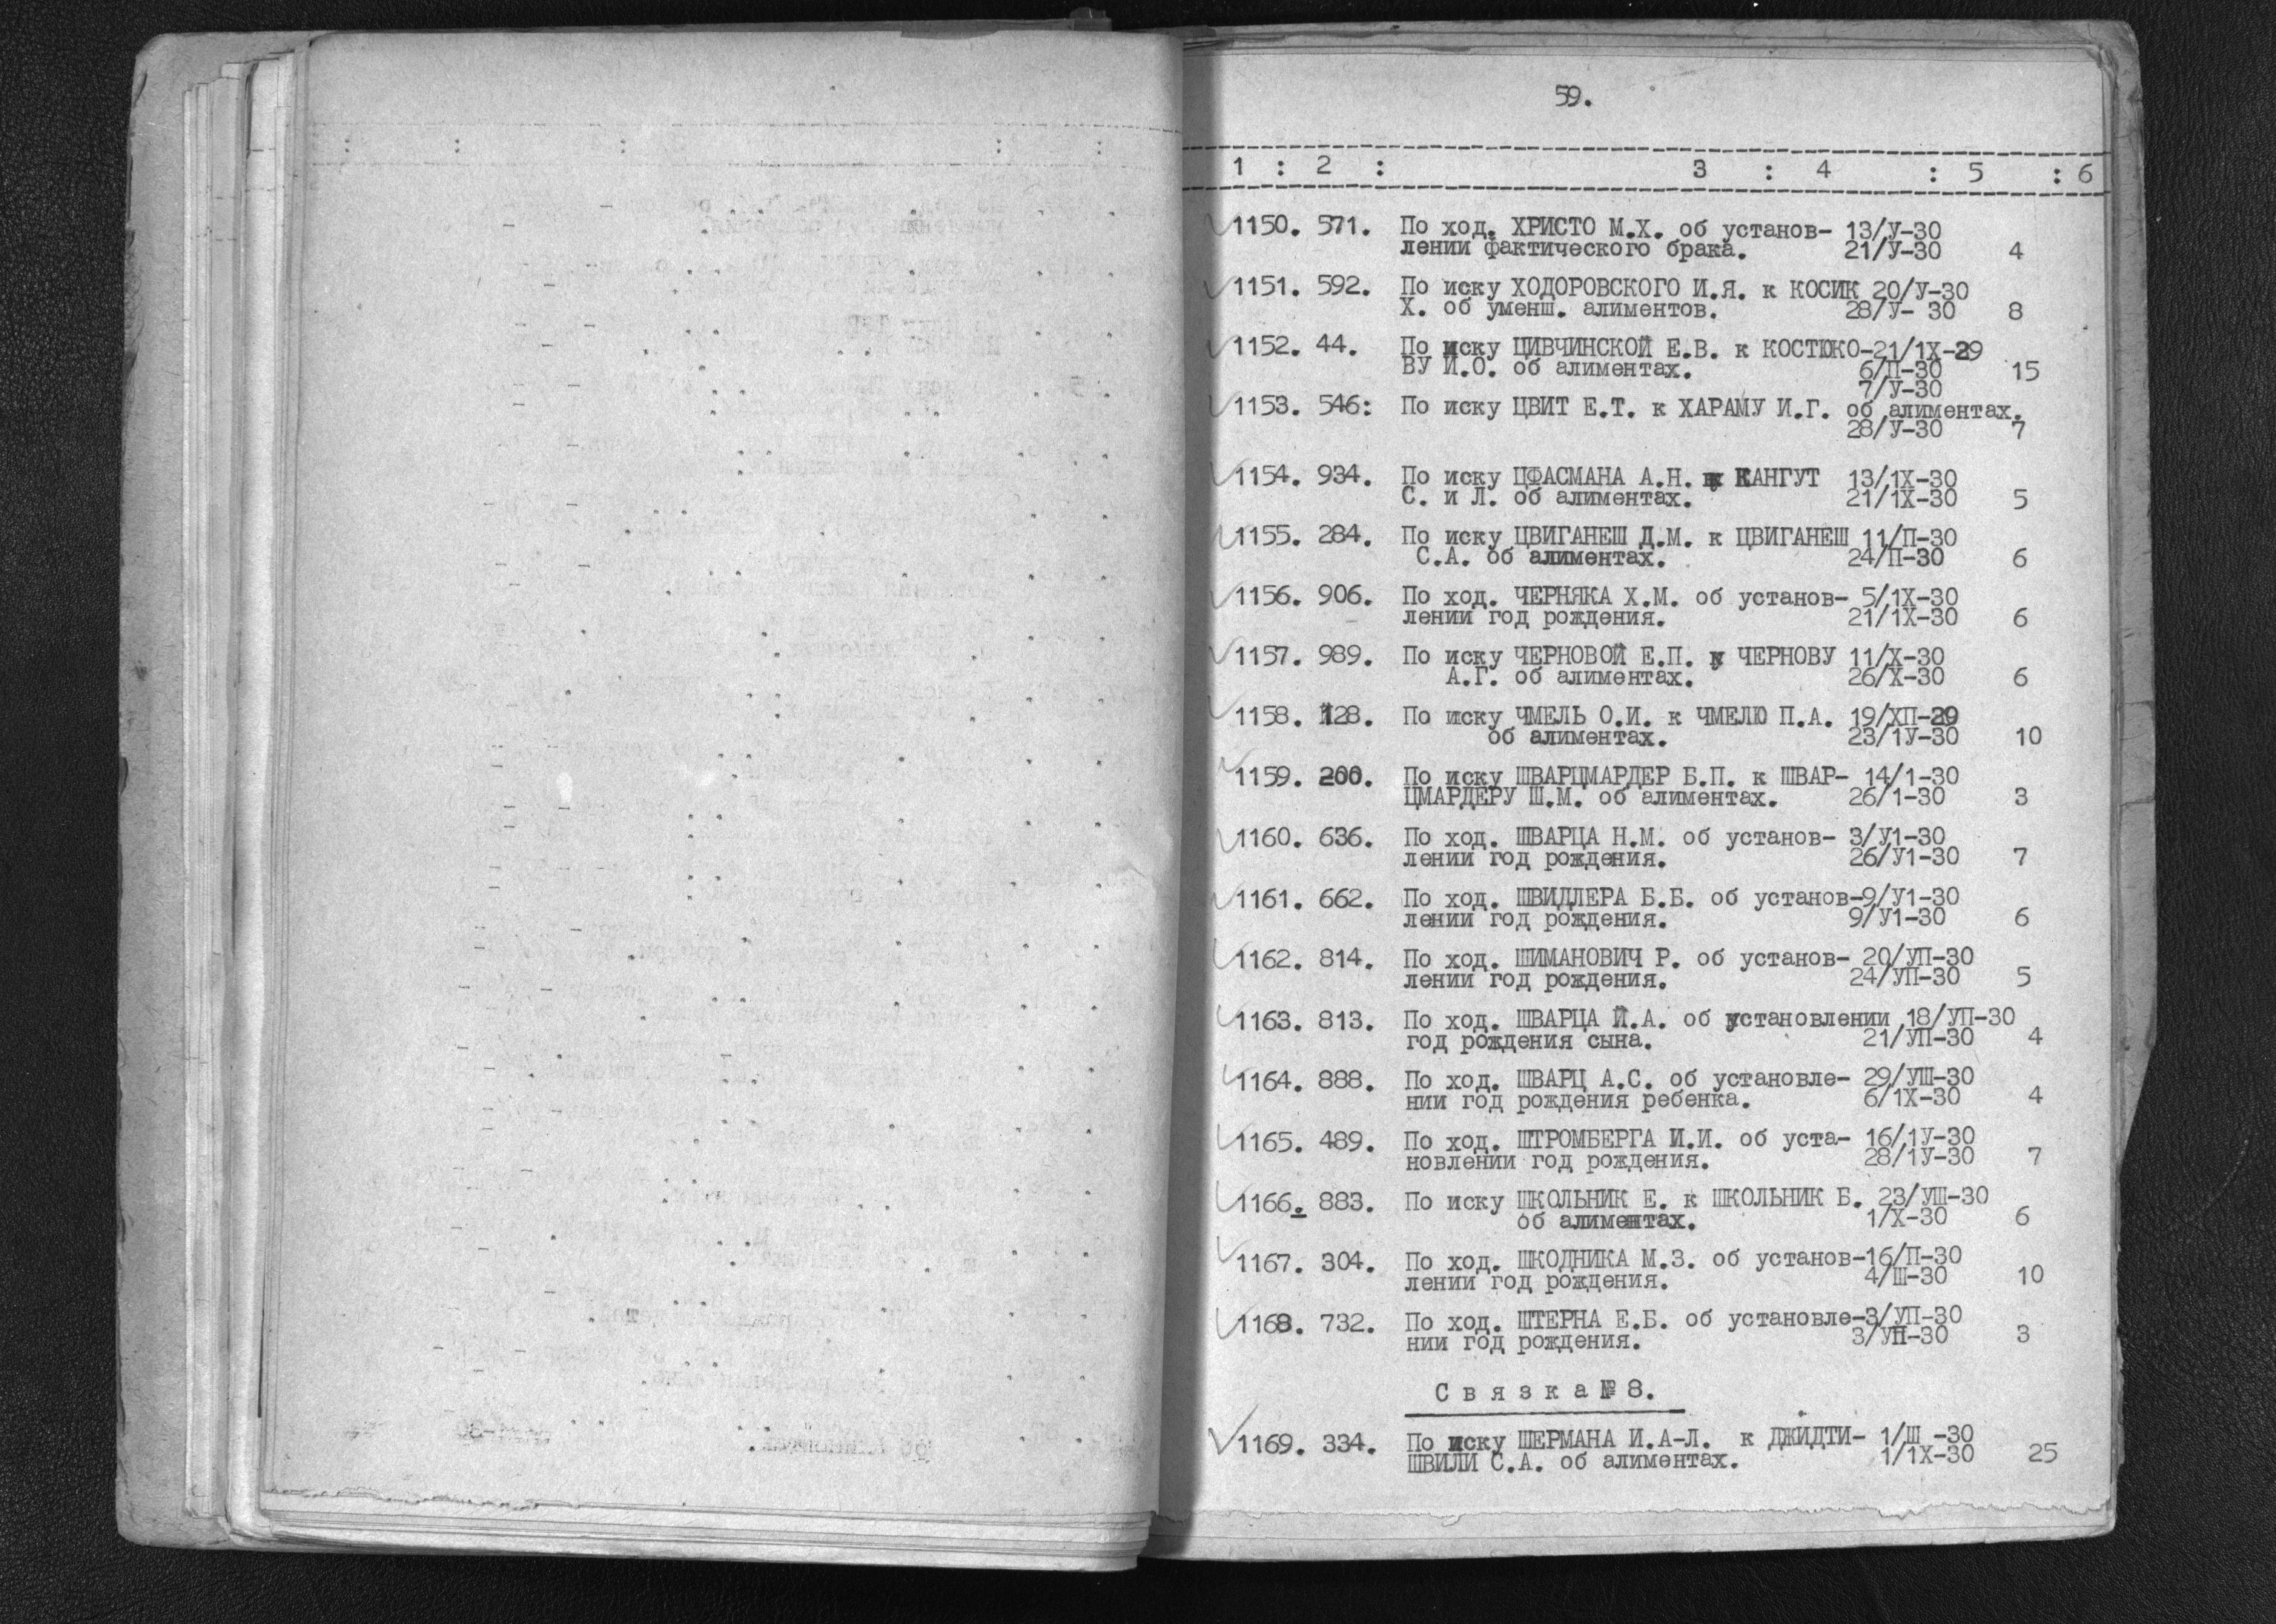 59.
1 : 2 : 3 : 4 : 5 : 6
1150. 571. По ход. ХРИСТО М.Х. об установ- 13/У-30
лении фактического брака. 21/У-30 4
1151. 592. По иску ХОДОРОВСКОГО И.Я. к КОСИК 20/У-30
Х. об уменш. алиментов. 28/У- 30 8
1152. 44. По иску ЦИВЧИНСКОЙ Е.В. к КОСТЮКО-21/1Х-29
ВУ И.О. об алиментах. 6/П-30 15
7/У-30
1153. 546: По иску ЦВИТ Е.Т. к ХАРАМУ И.Г. об алиментах.
28/У-30 7
1154. 934. По иску ЦФАСМАНА А.Н. к КАНГУТ 13/1Х-30
С. и Л. об алиментах. 21/1Х-30 5
1155. 284. По иску ЦВИГАНЕШ Д.М. к ЦВИГАНЕШ 11/П-30
С.А. об алиментах. 24/П-30 6
1156. 906. По ход. ЧЕРНЯКА Х.М. об установ- 5/1Х-30
лении год рождения. 21/1Х-30 6
1157. 989. По иску ЧЕРНОВОЙ Е.П. к ЧЕРНОВУ 11/Х-30
А.Г. об алиментах. 26/Х-30 6
1158. 128. По иску ЧМЕЛЬ О.И. к ЧМЕЛЮ П.А. 19/ХП-29
об алиментах. 23/1У-30 10
1159. 200. По иску ШВАРЦМАРДЕР Б.П. к ШВАР- 14/1-30
ЦМАРДЕРУ Ш.М. об алиментах. 26/1-30 3
1160. 636. По ход. ШВАРЦА Н.М. об установ- 3/У1-30
лении год рождения. 26/У1-30 7
1161. 662. По ход. ШВИДЛЕРА Б.Б. об установ-9/У1-30
лении год рождения. 9/У1-30 6
1162. 814. По ход. ШИМАНОВИЧ Р. об установ- 20/УП-30
лении год рождения. 24/УП-30 5
1163. 813. По ход. ШВАРЦА Й.А. об установлении 18/УП-30
год рождения сына. 21/УП-30 4
1164. 888. По ход. ШВАРЦ А.С. об установле- 29/УШ-30
нии год рождения ребенка. 6/1Х-30 4
1165. 489. По ход. ШТРОМБЕРГА И.И. об уста- 16/1У-30
новлении год рождения. 28/1У-30 7
1166. 883. По иску ШКОЛЬНИК Е. к ШКОЛЬНИК Б. 23/УШ-30
об алиментах. 1/Х-30 6
1167. 304. По ход. ШКОДНИКА М.З. об установ-16/П-30
лении год рождения. 4/Ш-30 10
1168. 732. По ход. ШТЕРНА Е.Б. об установле-3/УП-30
нии год рождения. 3/УП-30 3
С в я з к а № 8.
1169. 334. По иску ШЕРМАНА И.А-Л. к ДЖИДТИ- 1/Ш -30
ШВИЛИ С.А. об алиментах. 1/1Х-30 25